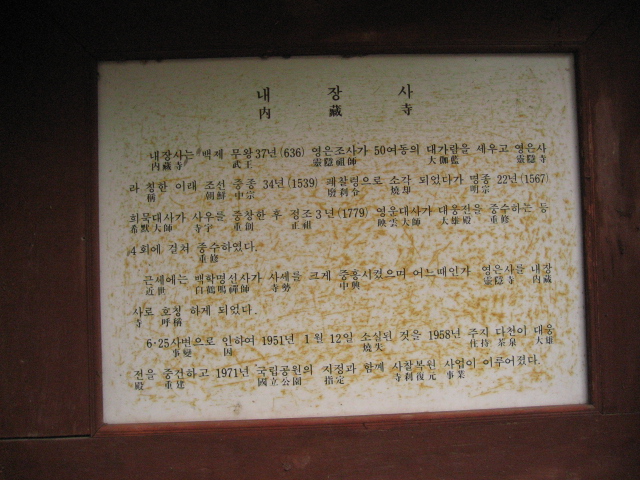 내 장 사
内 藏 寺
내장사는 백제 무왕37년(636) 영은조사가 50여동의 대가람을 세우고 영은사
内藏寺 武王 靈隱祖師 大伽藍 靈隱寺
라 칭한 이래 조선 중종 34년(1539) 폐찰령으로 소각 되었다가 명종 22년(1567)
稱 朝鮮 中宗 廢刹令 燒却 明宗
희묵대사가 사우를 중창한 후 정조3년(1779) 영운대사가 대웅전을 중수하는 등
希默大師 寺宇 重創 正祖 映雲大師 大雄殿 重修
4회에 걸쳐 중수하였다.
重修
근세에는 백학명선사가 사세를 크게 중흥시켰으며 어느때인가 영은사를 내장
近世 白鶴鳴禪師 寺勢 中興 靈隱寺 内藏
사로 호칭 하게 되었다.
寺 呼稱
6·25사변으로 인하여 1951년 1월 12일 소실된 것을 1958년 주지 다천이 대웅
事變 因 燒失 住持 茶泉 大雄
전을 중건하고 1971년 국립공원의 지정과 함께 사찰복원 사업이 이루어졌다.
殿 重建 國立公園 指定 寺刹復元 事業